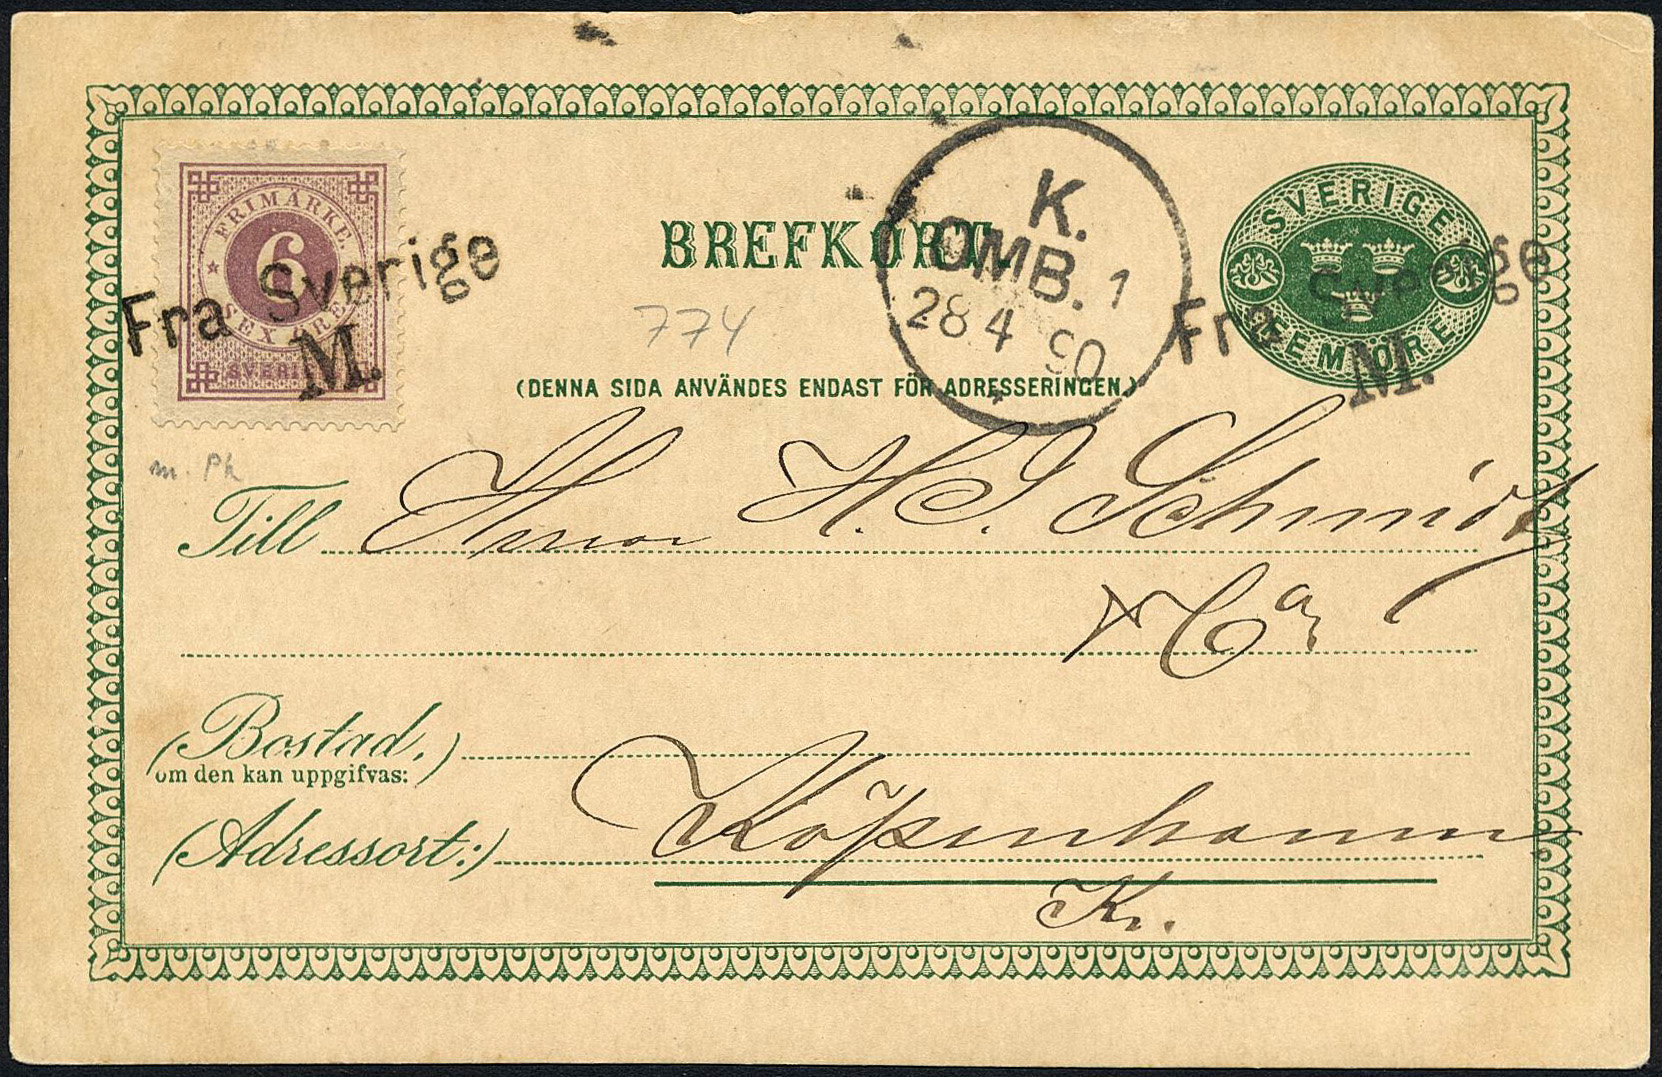 FRIMÄRKE
6
SEX ÖRE
SVERIGE
Fra Sverige
M.
BREFKORT
K.
OMB. 1
28 4 90
SVERIGE
FEM ÖRE
Fra Sverige
M.
774
(DENNA SIDA ANVÄNDES ENDAST FÖR ADRESSERINGEN.)
m. Ph
Till Herrar H. J. Schmidt
& Co
(Bostad,)
om den kan uppgifvas:
(Adressort:) Köpenhamn
K.